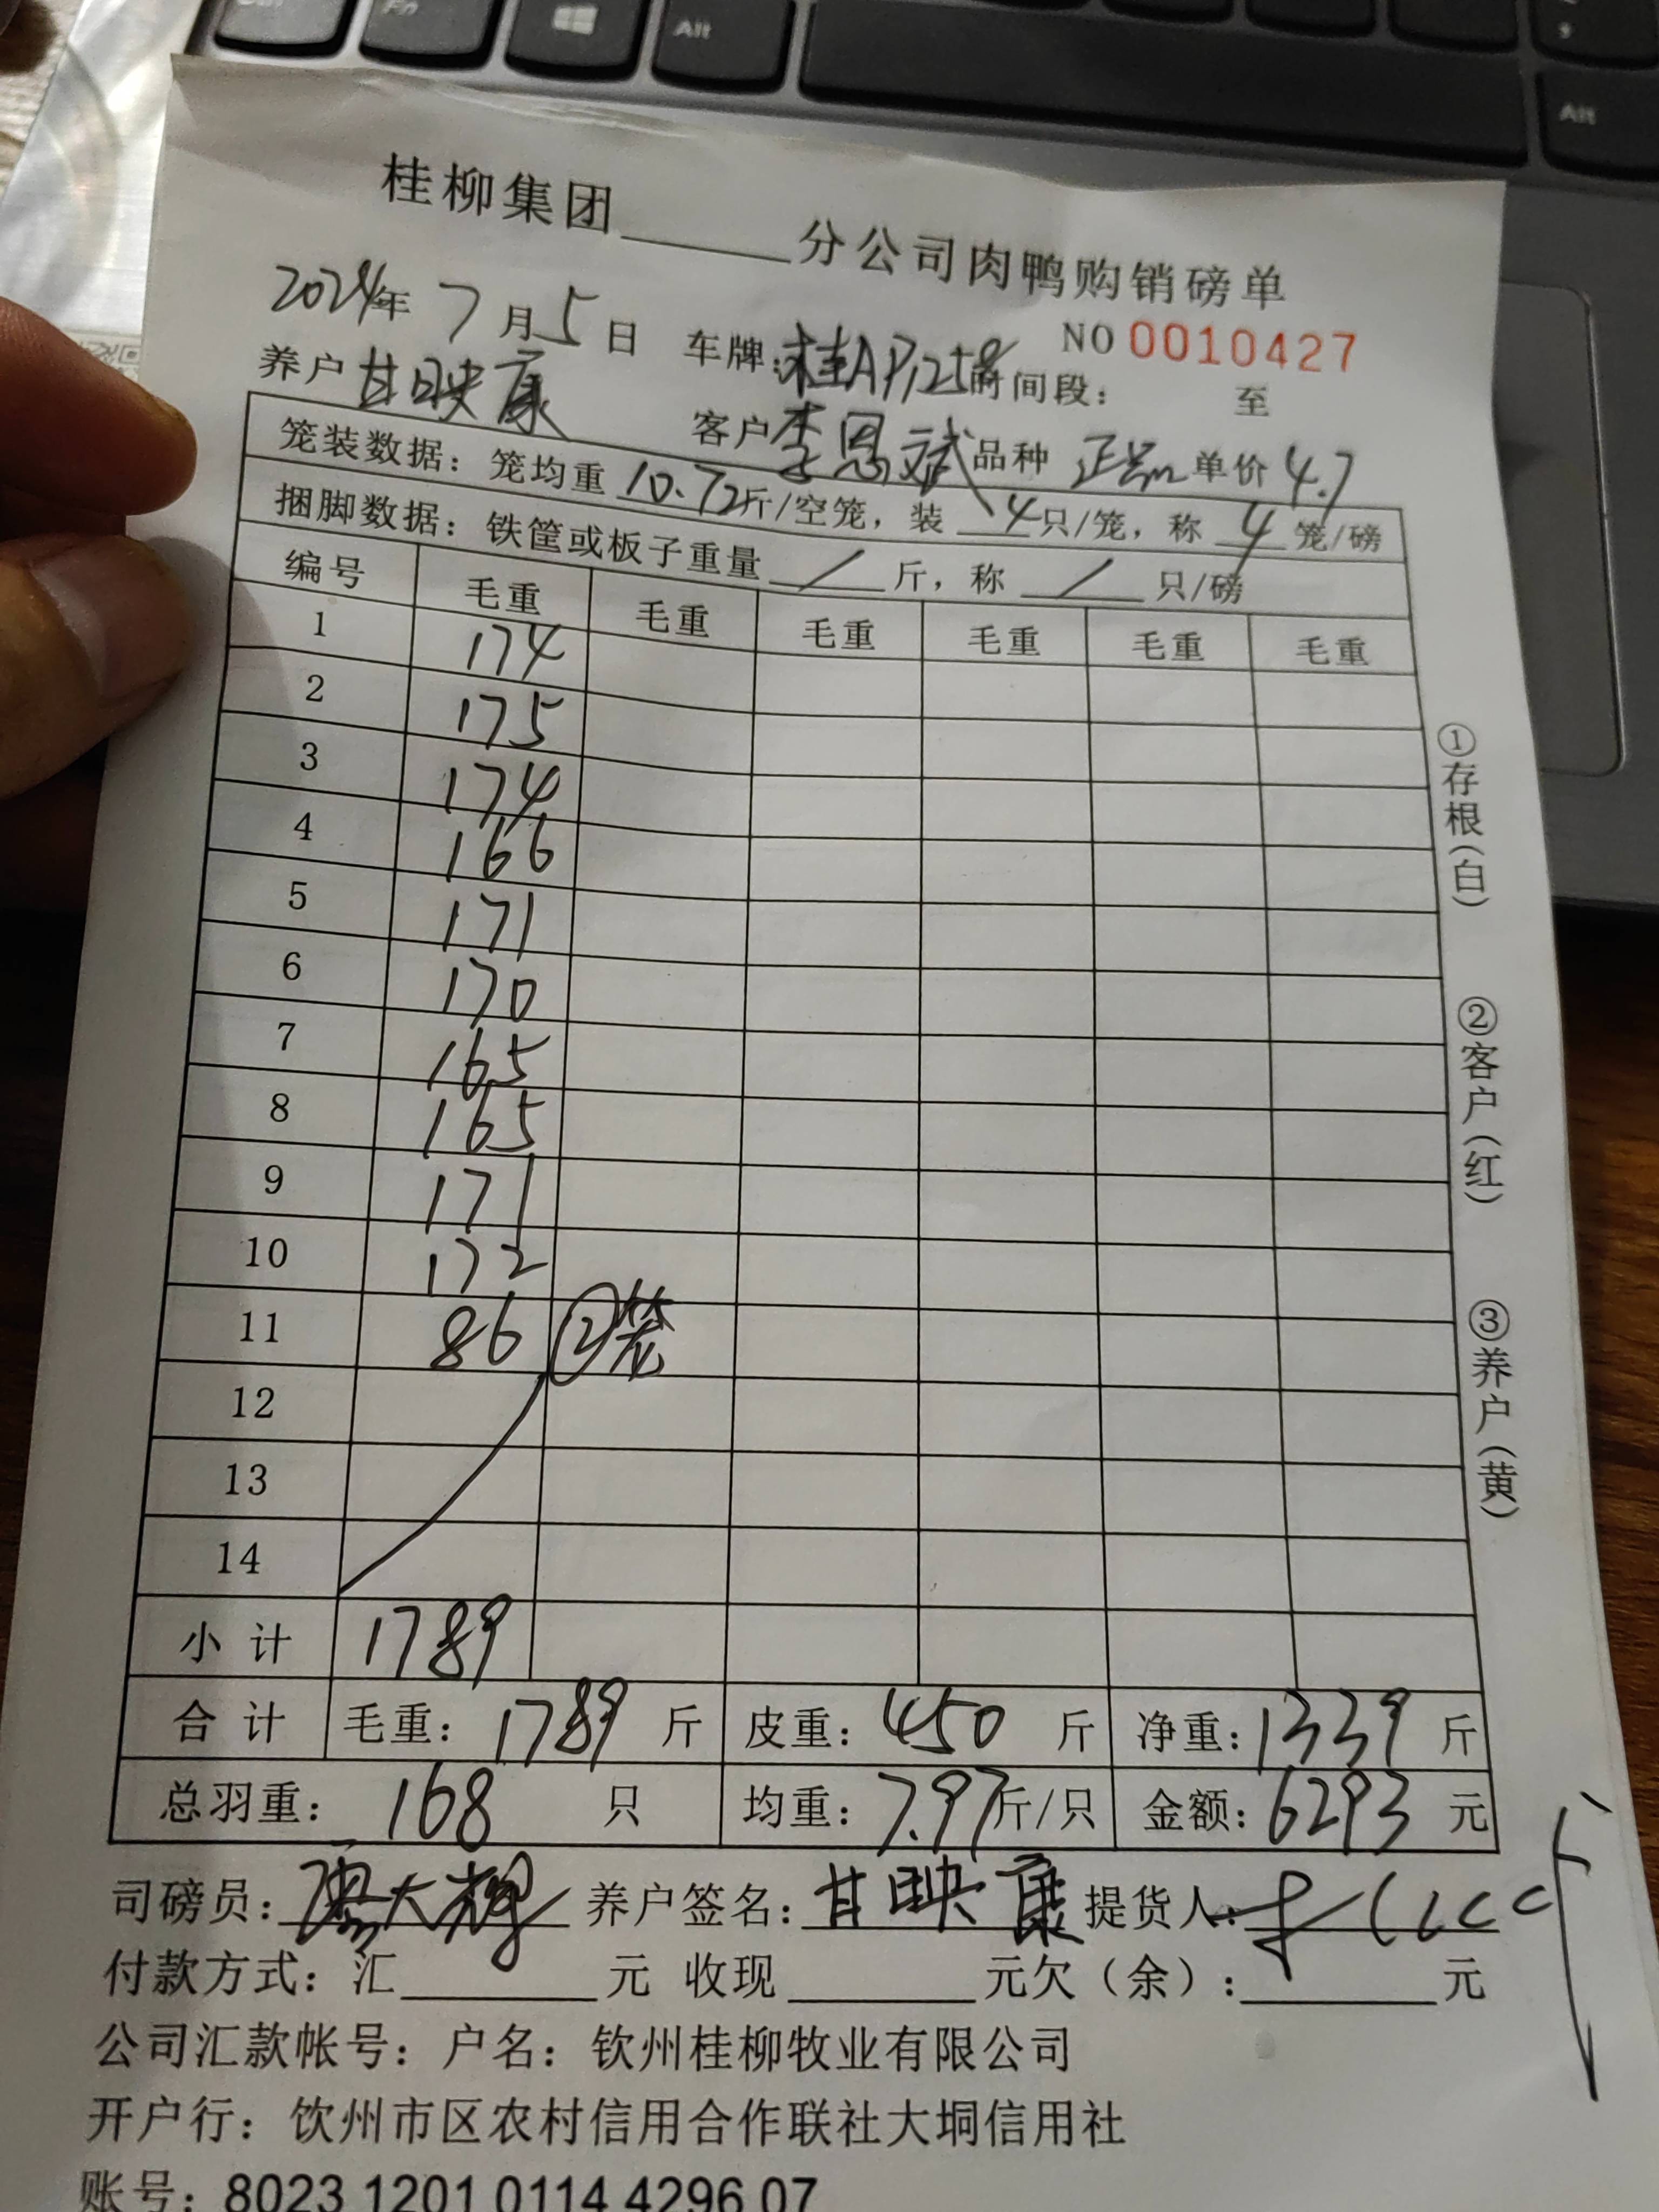 桂柳集团______分公司肉鸭购销磅单
2024年 7月5日 车牌:桂AP1258 NO 0010427
时间段: 至
养户 甘映康 客户 李恩斌 品种 正品 单价 4.7
笼装数据: 笼均重 10.72斤/空笼, 装 4只/笼, 称 4 笼/磅
捆脚数据: 铁筐或板子重量 / 斤, 称 / 只/磅
编号 毛重 毛重 毛重 毛重 毛重 毛重
1 174
2 175
3 174
4 166
5 171
6 170
7 165
8 165
9 171
10 172
11 86 ②笼
12
13
14
小计 1789
合计 毛重: 1789 斤 皮重: 450 斤 净重: 1339 斤
总羽重: 168 只 均重: 7.97斤/只 金额: 6293 元
司磅员: 养户签名: 甘映康 提货人:
付款方式: 汇______元 收现______元欠(余):______元
公司汇款帐号: 户名: 钦州桂柳牧业有限公司
开户行: 饮州市区农村信用合作联社大垌信用社
账号: 8023 1201 0114 4296 07
①存根(白)
②客户(红)
③养户(黄)
Fn
Alt
Alt